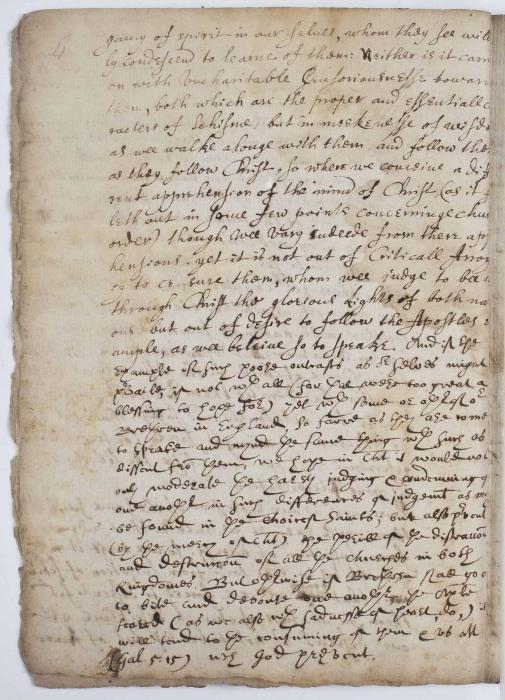 4
gancy of spirit in our selves, whom they see wil
ly condescend to learne of them: Neither is it carri
on with Uncharitable Censoriousnesse toward
them, both which are the proper and essentiall c
racters of Schisme, but in meeknesse of wisdo
as wee walke alonge with them, and follow the
as they follow Christ, so where we conceive a diff
rent apprehension of the mind of Christ (as it
leth out in some few points concerninge Chur
order) though wee vary indeede from there app
hensions, yet it is not out of Criticall Arro
cy to censure them, whom wee judge to bee
through Christ the glorious Lights of both na
ons but out of desire to follow the Apostles e
ample, as wee beleive so to speake. And if the
Example of such poore outcasts as or selves might
pvaile if not wth all (for that were too great a
blessing to hope for) yet wth some or others of or
Brethren in England, so farre as they are come
to speake and mynd the same thing wth such as
dissent fro them, wee hope in Cht it would not
only moderate the harsh judging & condemning of
one anothr in such differences of judgmt as may
be found in the choicest Saints; but also pvent
(by the mercy of Cht) the perill of the distraction
and destruction of all the churches in both
kingdomes. But otherwise if Brethren shall goe o
to bite and devoure one anothr, the Aposle
feared (as we also wth sadnesse of heart, do,) it
will tend to the consuming of them & us all
(Gal 5.15) wch god prevent.